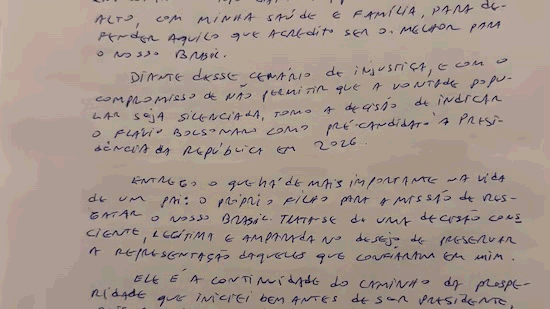 ALTO, COM MINHA SAÚDE E FAMÍLIA, PARA DE-
FENDER AQUILO QUE ACREDITO SER O MELHOR PARA
O NOSSO BRASIL.
DIANTE DESSE CENÁRIO DE INJUSTIÇA, E COM O
COMPROMISSO DE NÃO PERMITIR QUE A VONTADE POPU-
LAR SEJA SILENCIADA, TOMO A DECISÃO DE INDICAR
O FLÁVIO BOLSONARO COMO PRÉ-CANDIDATO À PRESI-
DÊNCIA DA REPÚBLICA EM 2026.
ENTREGO O QUE HÁ DE MAIS IMPORTANTE NA VIDA
DE UM PAI: O PRÓPRIO FILHO PARA A MISSÃO DE RES-
GATAR O NOSSO BRASIL. TRATA-SE DE UMA DECISÃO CONS-
CIENTE, LEGÍTIMA E AMPARADA NO DESEJO DE PRESERVAR
A REPRESENTAÇÃO DAQUELES QUE CONFIARAM EM MIM.
ELE É A CONTINUIDADE DO CAMINHO DA PROSPE-
RIDADE QUE INICIEI BEM ANTES DE SER PRESIDENTE,